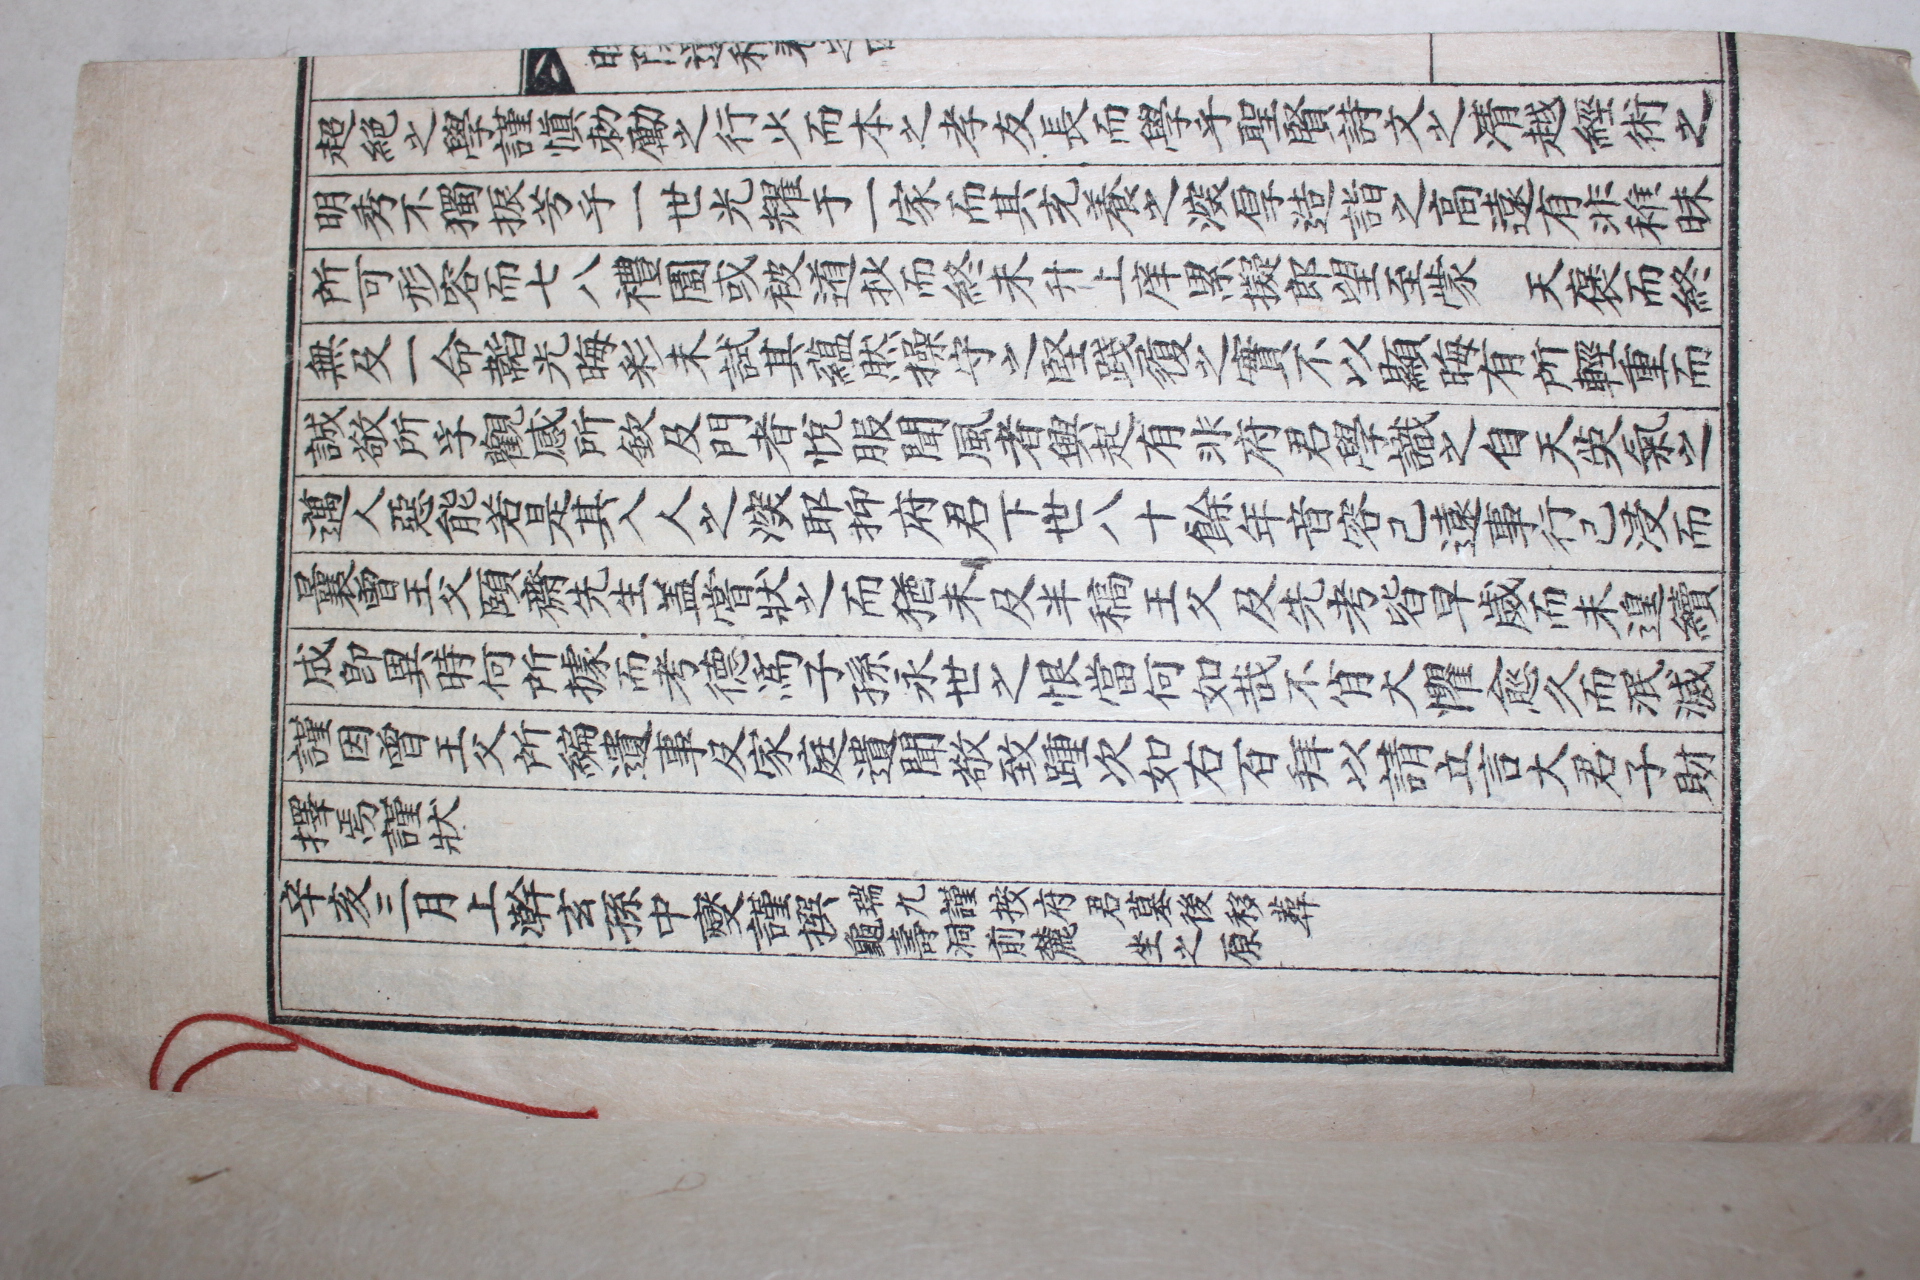 遺稿卷之四
超絶之學謹愼勅勵之行少而本之孝友長而學乎聖賢詩文之清越經術之
明秀不獨振芳乎一世光耀于一家而其充養之深厚造詣之高遠有非稚昧
所可形容而七八禮圍或被道抄而終未升上庠累擬郎望至蒙 天褒而終
無及一命韜光晦彩未試其蘊然操守之堅踐履之實不以顯晦有所輕重而
誠敬所孚觀感所欽及門者悅服聞風者興起有非府君學識之自天英氣之
邁人惡能若是其入人之深耶抑府君下世八十餘年音容已遠事行已浸而
曩曾王父頤齋先生盖嘗狀之而猶未及半稿王父及先考皆早歲而未遑續
成卽異時何所據而考德爲子孫永世之恨當何如哉不肖大懼愈久而泯滅
謹因曾王父所編遺事及家庭遺聞敬致踵次如右百拜以請立言大君子財
擇焉謹狀
辛亥三月上澣玄孫中燮謹撰 瑞九謹按府君墓後移葬
龜壽洞前麓 坐之原